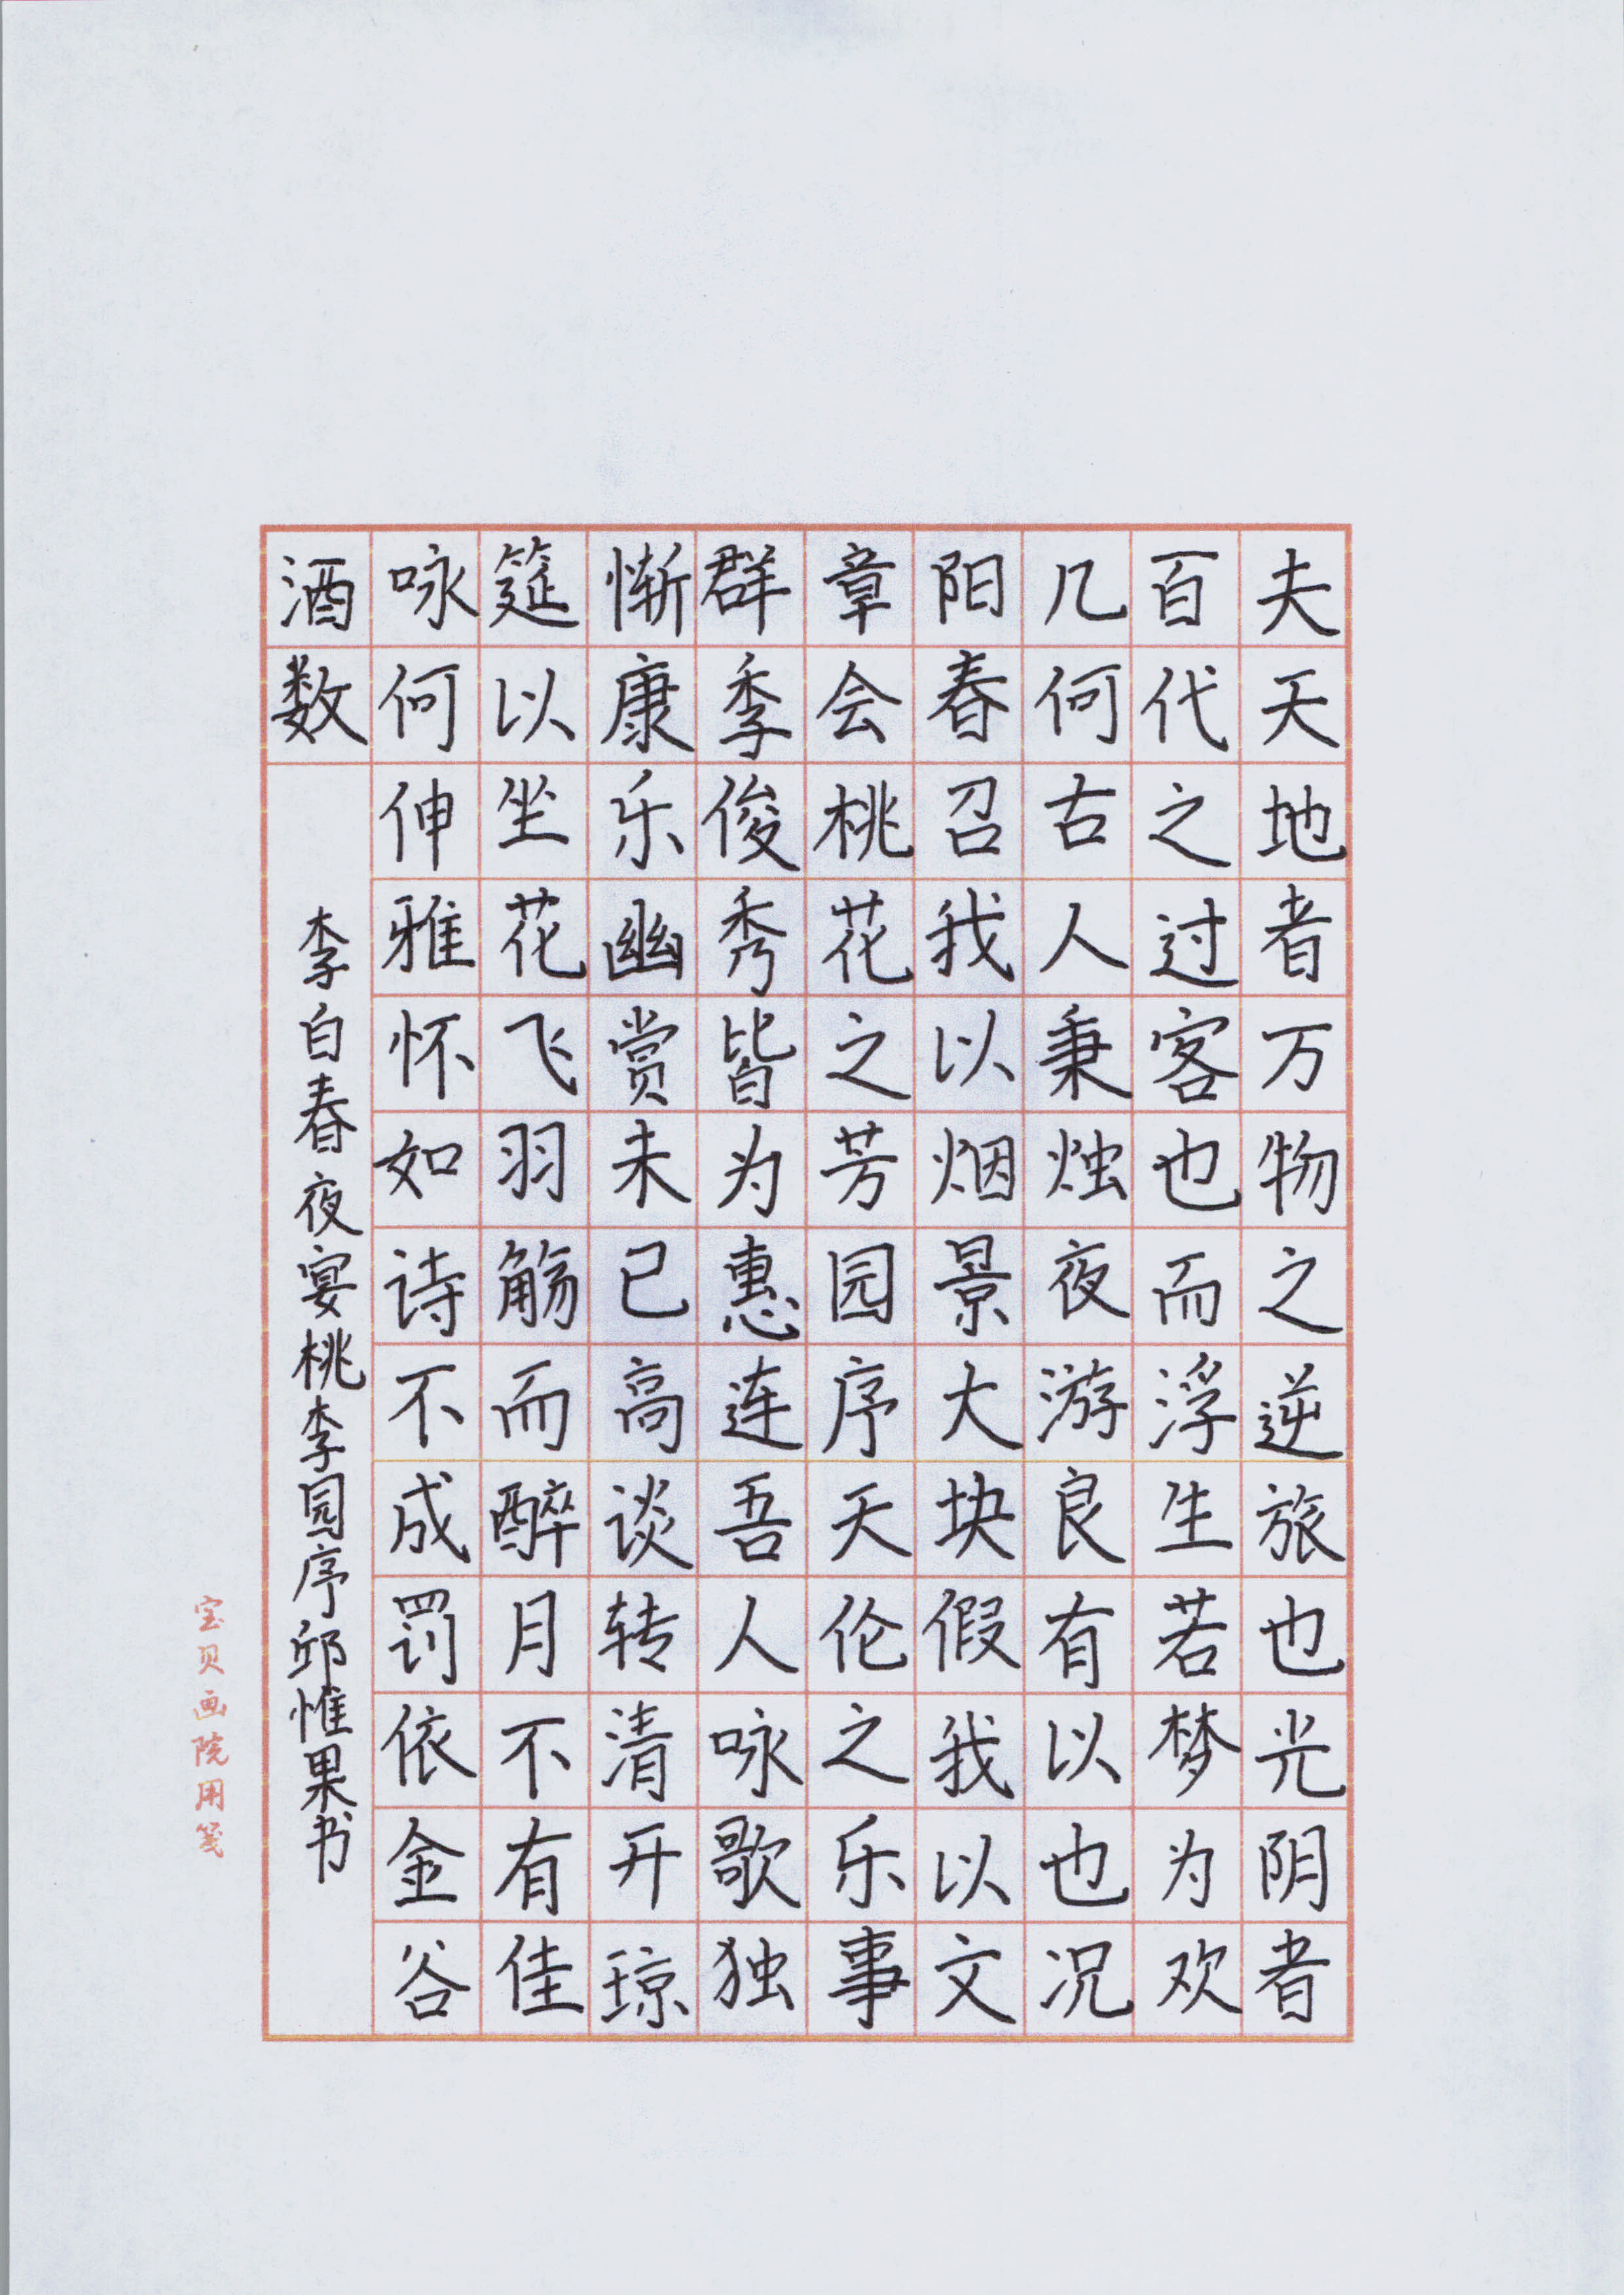 夫天地者万物之逆旅也光阴者
百代之过客也而浮生若梦为欢
几何古人秉烛夜游良有以也况
阳春召我以烟景大块假我以文
章会桃花之芳园序天伦之乐事
群季俊秀皆为惠连吾人咏歌独
惭康乐幽赏未已高谈转清开琼
筵以坐花飞羽觞而醉月不有佳
咏何伸雅怀如诗不成罚依金谷
酒数
李白春夜宴桃李园序邱惟果书
宝贝画院用笺